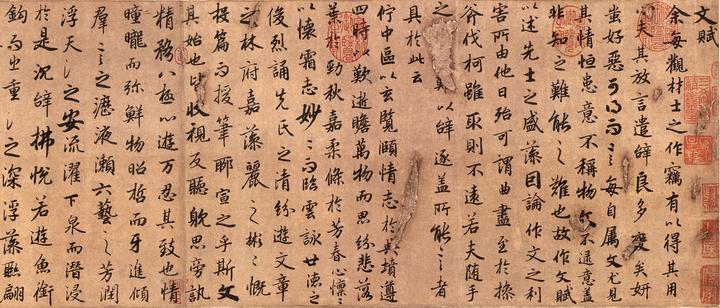 文賦
余每觀材士之作竊有以得其用
心夫其放言遣辭良多變矣妍
蚩好惡可得而言每自屬文尤見
其情恒患意不稱物文不逮意蓋
非知之難能之難也故作文賦
以述先士之盛藻因論作文之利
害所由他日殆可謂曲盡至於操
斧伐柯雖取則不遠若夫隨手
之難以辭逐蓋所能言者
具於此云
佇中區以玄覽頤情志於典墳遵
四時以歎逝瞻萬物而思紛悲落
葉於勁秋嘉柔條於芳春心懍懍
以懷霜志妙妙而臨雲詠世德之
俊烈誦先民之清紛遊文章
之林府嘉藻麗之彬彬慨
投篇而援筆聊宣之乎斯文
其始也皆收視反聽耽思旁訊
精騖八極心遊万仞其致也情
曈曨而彌鮮物昭晢而互進傾
群言之瀝液漱六藝之芳潤
浮天淵之安流濯下泉而潛浸
於是沉辭怫悅若遊魚銜
鈎而出重淵之深浮藻聯翩